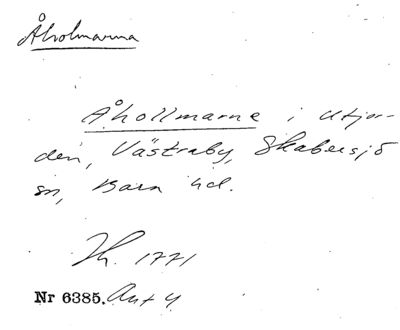 Åholmarna
Åhollmarne i Utjor-
den, Västraby, Skabersjö
sn, Bara hd.
Th. 1771
Nr 6385. Ant 4